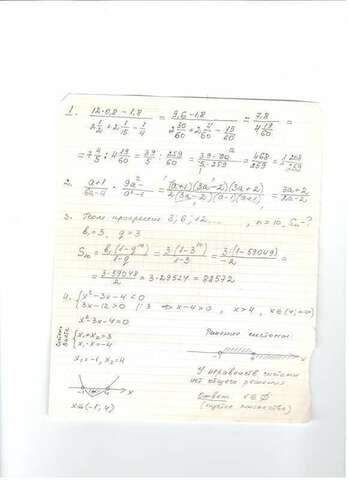 1. (12·0,8 − 1,8)/(2 1/2 + 2 1/15 − 1/4) = (9,6 − 1,8)/(2 30/60 + 2 4/60 − 15/60) = 7,8/(4 19/60) =
= 7 4/5 : 4 19/60 = 39/5 : 259/60 = (39·60)/(5·259) = 468/259 = 1 209/259
2. (a+1)/(6a−4) · (9a²−4)/(a²−1) = (a+1)(3a−2)(3a+2)/(2(3a−2)(a−1)(a+1)) = (3a+2)/(2a−2)
3. Геом. прогрессия 3; 6; 12 ... , n = 10, Sn − ?
b₁ = 3. q = 3
S₁₀ = b₁(1−qⁿ)/(1−q) = 3·(1−3¹⁰)/(1−3) = 3·(1−59049)/(−2) =
= 3·59048/2 = 3·29524 = 88572
4. { x² − 3x − 4 < 0
3x − 12 > 0 | : 3 ⇒ x − 4 > 0 , x > 4 , x ∈ (4; +∞)
x² − 3x − 4 = 0
{ x₁ + x₂ = 3
x₁ · x₂ = −4
x₁ = −1, x₂ = 4
−1 4 x
x ∈ (−1; 4)
Решение системы:
−1 4 x
У неравенств системы
нет общего решения
Ответ: x ∈ ∅
(пустое множество)